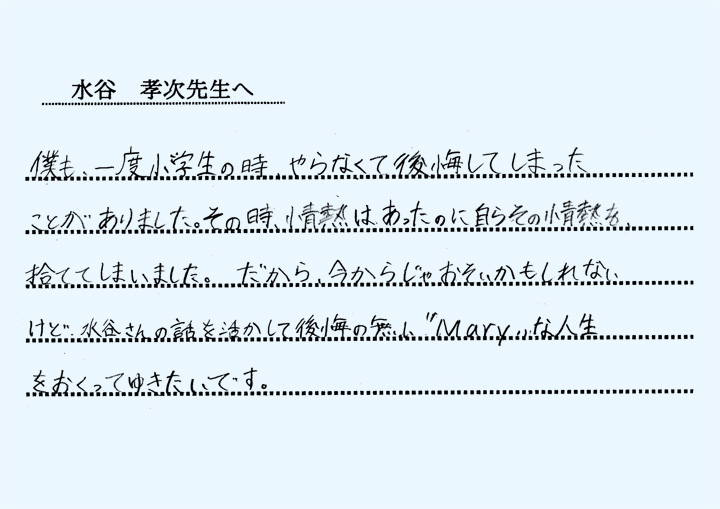 水谷 孝次先生へ
僕も、一度小学生の時、やらなくて後悔してしまった
ことがありました。その時、情熱はあったのに自らその情熱を、
捨ててしまいました。だから、今からじゃおそいかもしれない
けど、水谷さんの話を活かして後悔の無い"Mary"な人生
をおくってゆきたいです。